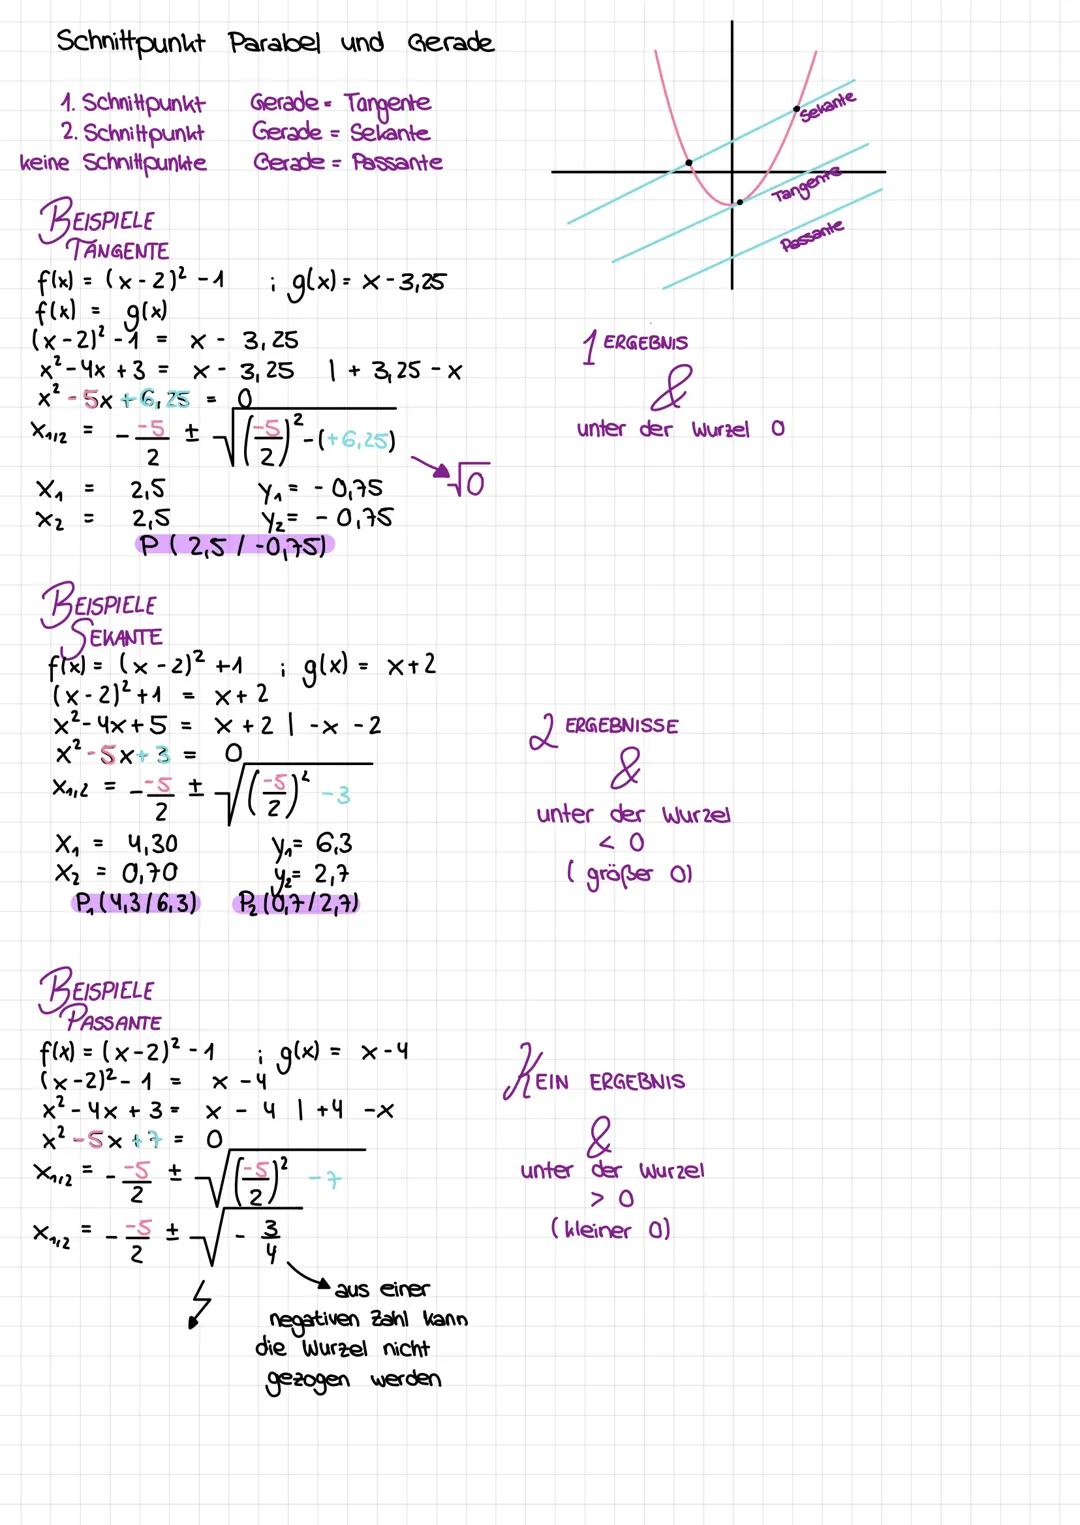 Schnittpunkt Parabel und Gerade
1. Schnittpunkt Gerade = Tangente
2. Schnittpunkt Gerade = Sekante
keine Schnittpunkte Gerade = Passante
Sekante
Tangente
Passante
BEISPIELE
TANGENTE
f(x) = (x-2)² -1 ; g(x) = x-3,25
f(x) = g(x)
(x-2)² -1 = x - 3,25
x²-4x +3 = x - 3,25 | + 3,25 -x
x² -5x +6,25 = 0
x₁,₂ = - -5/2 ± √((-5/2)² -(+6,25))
√0
x₁ = 2,5 y₁ = -0,75
x₂ = 2,5 y₂ = -0,75
P ( 2,5 / -0,75)
1 ERGEBNIS
&
unter der Wurzel 0
BEISPIELE
SEKANTE
f(x) = (x-2)² +1 ; g(x) = x+2
(x-2)² +1 = x+2
x²-4x+5 = x+2 | -x -2
x² -5x+3 = 0
x₁,₂ = - -5/2 ± √((-5/2)² -3)
x₁ = 4,30 y₁ = 6,3
x₂ = 0,70 y₂ = 2,7
P₁ (4,3/6,3) P₂ (0,7/2,7)
2 ERGEBNISSE
&
unter der Wurzel
< 0
( größer 0)
BEISPIELE
PASSANTE
f(x) = (x-2)² -1 ; g(x) = x-4
(x-2)² - 1 = x -4
x² -4x +3 = x - 4 | +4 -x
x² -5x +7 = 0
x₁,₂ = - -5/2 ± √((-5/2)² -7)
x₁,₂ = - -5/2 ± √(- 3/4)
aus einer
negativen Zahl kann
die Wurzel nicht
gezogen werden
KEIN ERGEBNIS
&
unter der Wurzel
> 0
(kleiner 0)